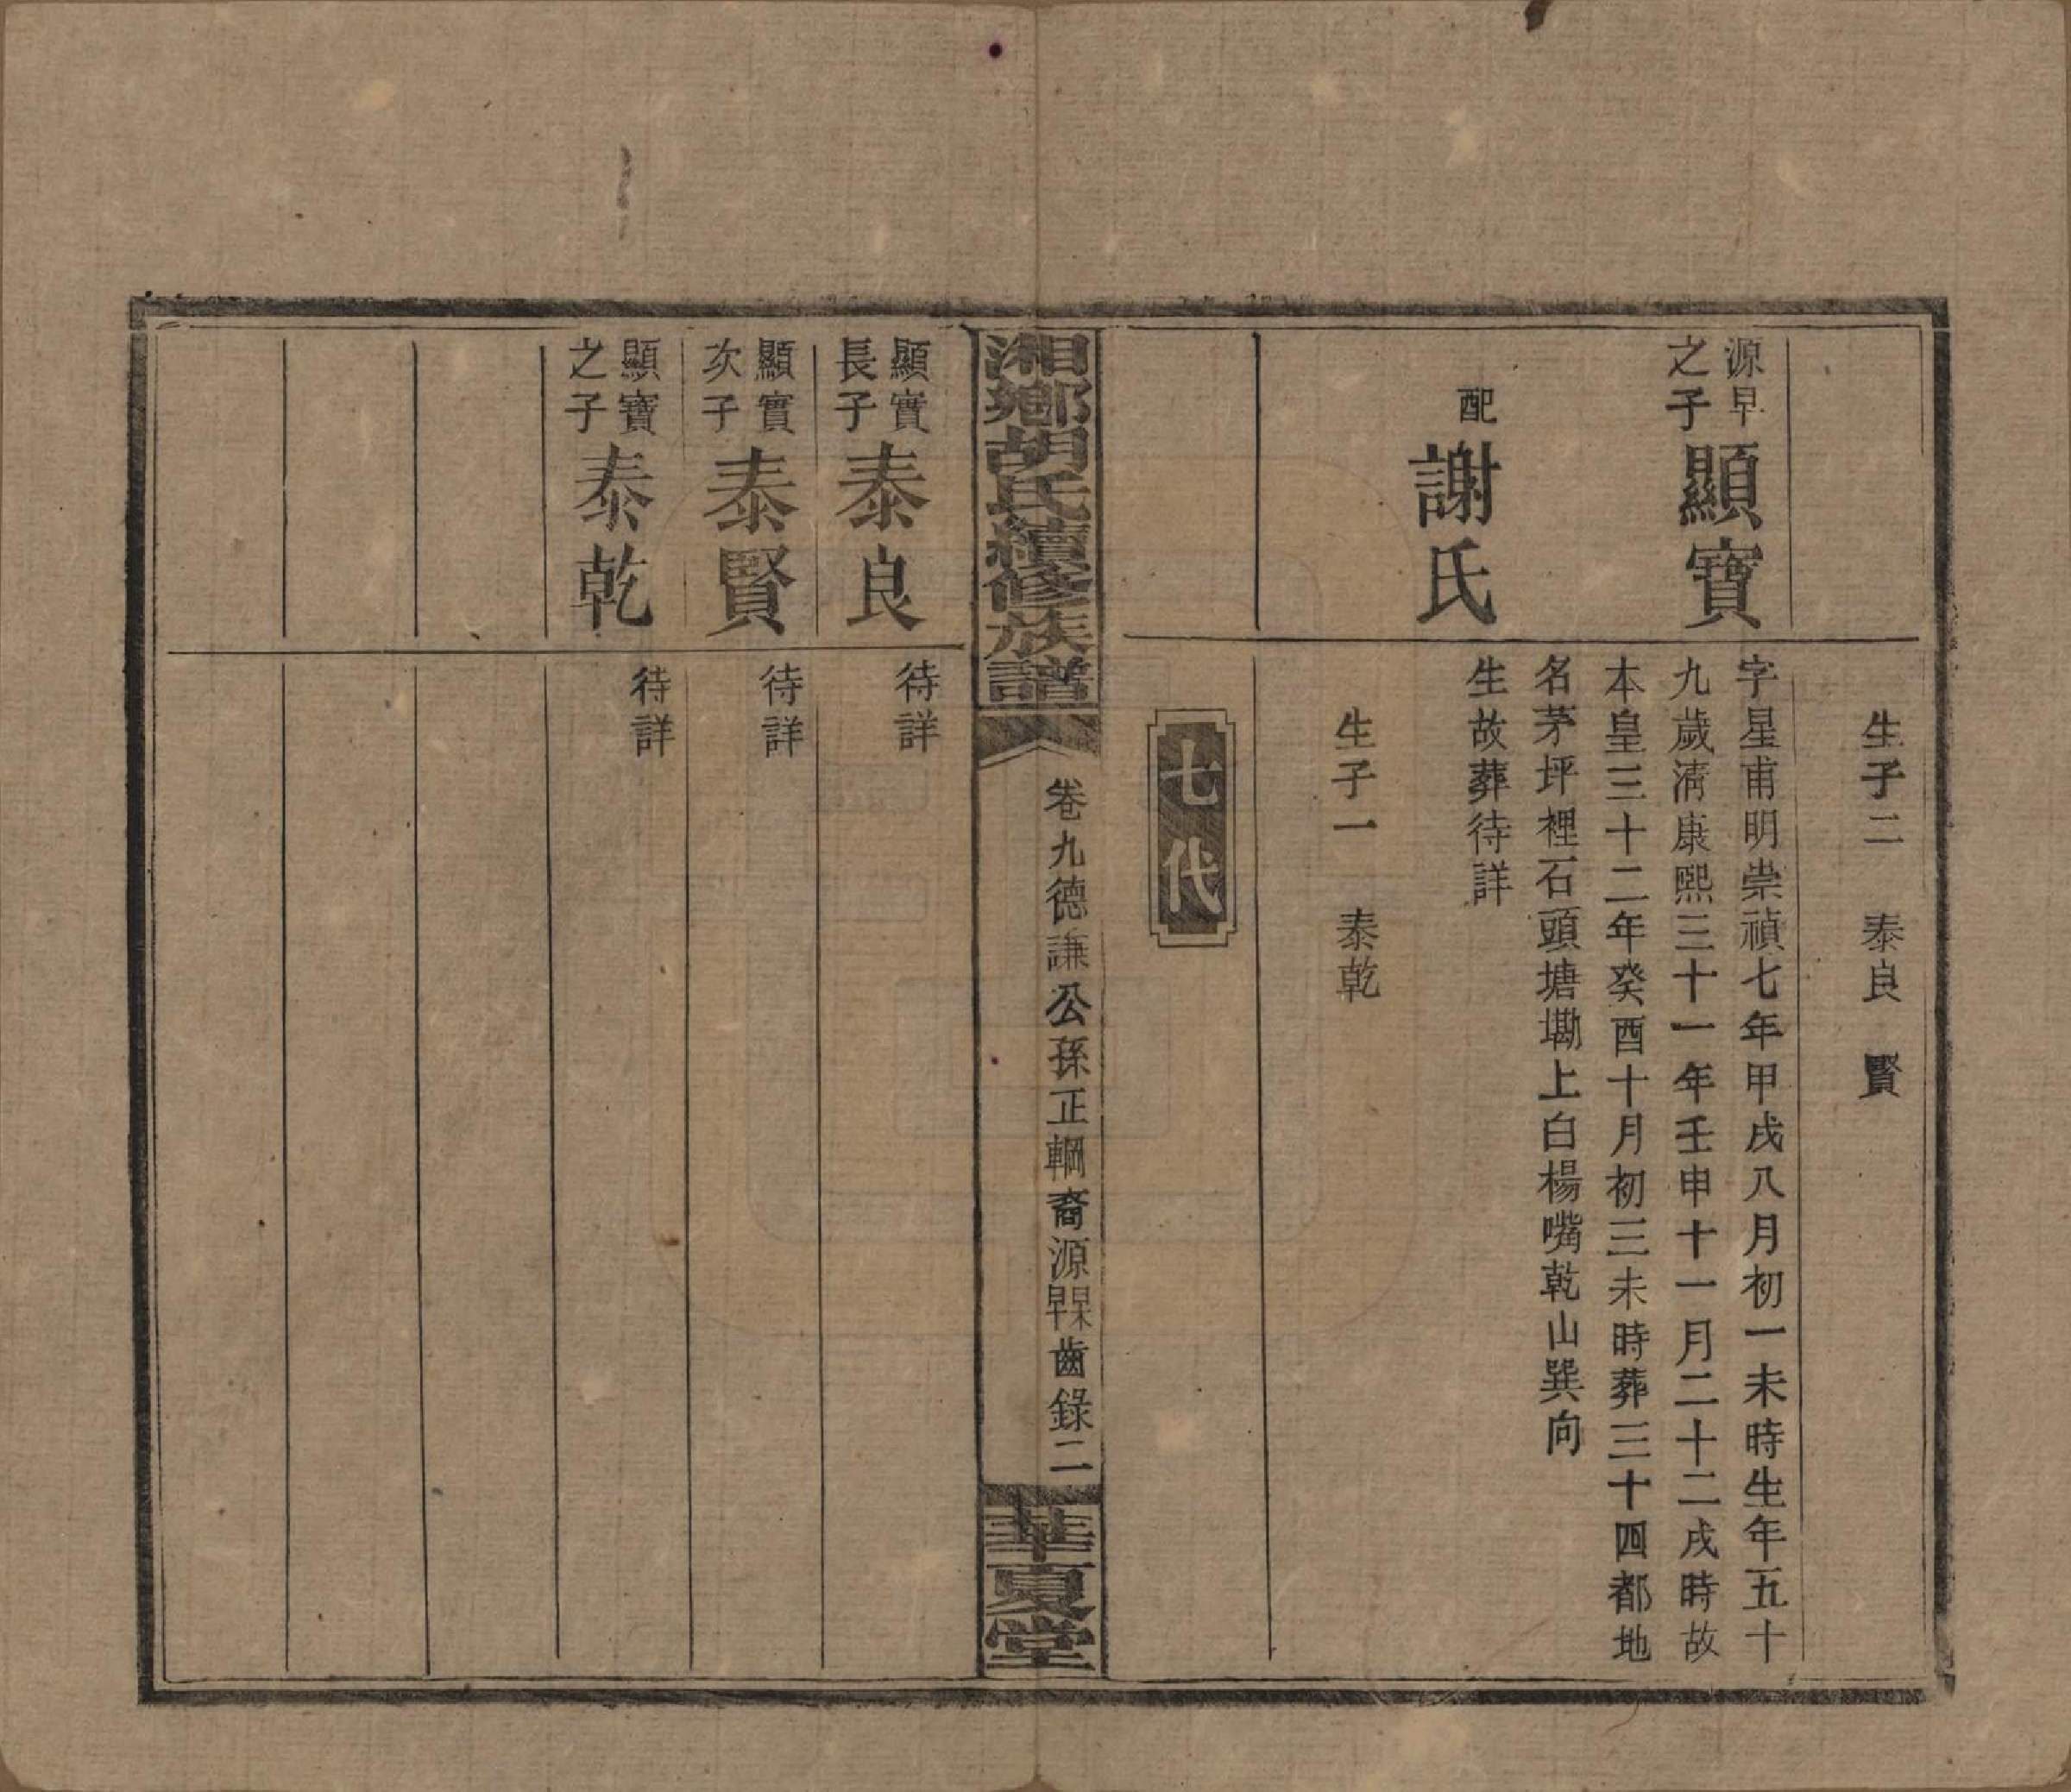 生子二　泰良　賢
源早
之子
顯寶
字星甫明崇禎七年甲戌八月初一未時生年五十
九歲淸康熙三十一年壬申十一月二十二戌時故
本皇三十二年癸酉十月初三未時葬三十四都地
名茅坪裡石頭塘墈上白楊嘴乾山巽向
配
謝氏
生故葬待詳
生子一　泰乾
七代
湘鄉胡氏續修族譜
卷九德謙公孫正輞裔源早杲齒錄二
華夏堂
顯實
長子
泰良
待詳
顯實
次子
泰賢
待詳
顯寶
之子
泰乾
待詳